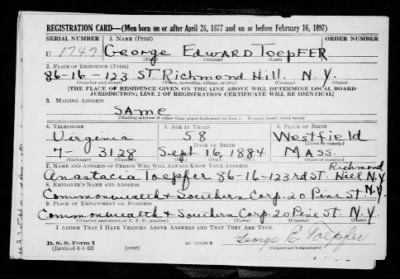 REGISTRATION CARD—(Men born on or after April 28, 1877 and on or before February 16, 1897)
SERIAL NUMBER 1. NAME (Print) ORDER NUMBER
U 1747 George Edward Toepfer
(First) (Middle) (Last)
2. PLACE OF RESIDENCE (Print)
86-16-123 St. Richmond Hill. N.Y.
(Number and street) (Town, township, village, or city) (County) (State)
[THE PLACE OF RESIDENCE GIVEN ON THE LINE ABOVE WILL DETERMINE LOCAL BOARD
JURISDICTION; LINE 2 OF REGISTRATION CERTIFICATE WILL BE IDENTICAL]
3. MAILING ADDRESS
Same
4. TELEPHONE 5. AGE IN YEARS 6. PLACE OF BIRTH
Virginia 58 Westfield
7- 3128 Sept 16, 1884 Mass.
7. NAME AND ADDRESS OF PERSON WHO WILL ALWAYS KNOW YOUR ADDRESS
Anastacia Toepfer 86-16-123rd St. Richmond Hill N.Y.
8. EMPLOYER'S NAME AND ADDRESS
Commonwealth & Southern Corp. 20 Pine St. N.Y.
9. PLACE OF EMPLOYMENT OR BUSINESS
Commonwealth & Southern Corp. 20 Pine St. N.Y.
I AFFIRM THAT I HAVE VERIFIED ABOVE ANSWERS AND THAT THEY ARE TRUE.
D. S. S. Form 1
(Revised 4-1-42) (over)
George E. Toepfer